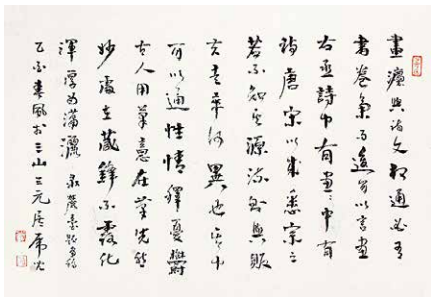 畫道與詩文相通必有
書卷氣而後可以言畫
右丞詩中有畫畫中有
詩唐宋以來悉宗之
若不知其源流則與販
夫走卒何異也畫中
可以通性情釋憂鬱
古人用筆意在筆先然
妙處在藏鋒不露化
渾厚為瀟灑
春風於三山三元居